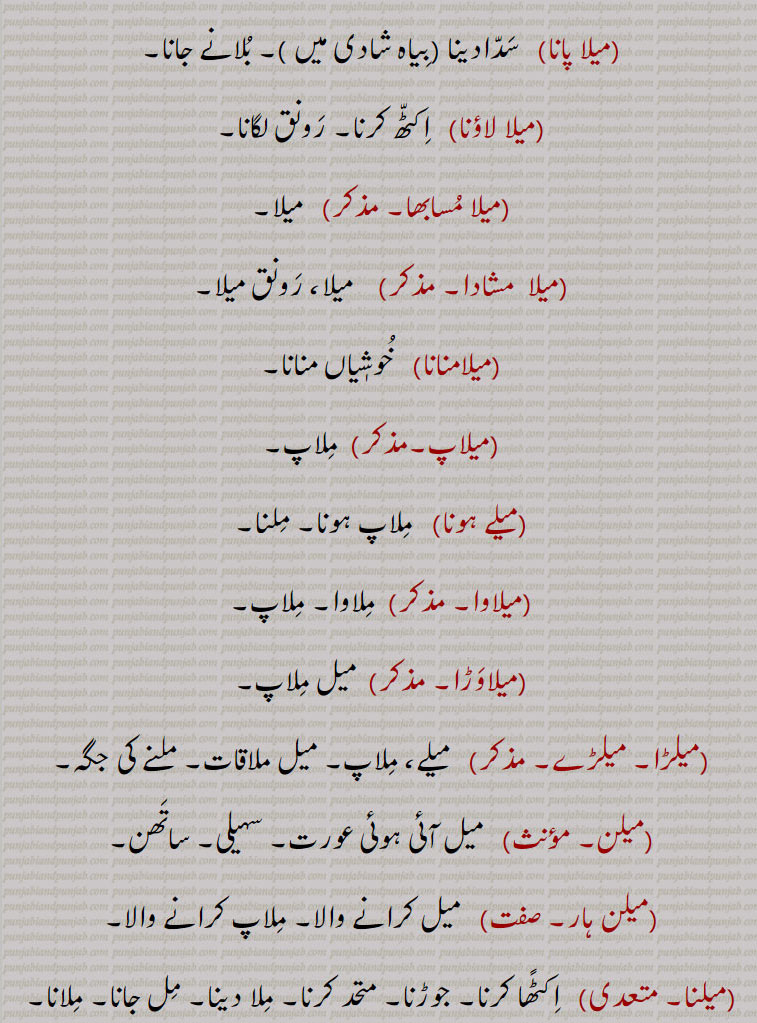 (میلا پانا) سَدّا دینا (بِیاہ شادی میں )۔ بُلانے جانا۔
(میلا لاؤنا) اِکٹّھ کرنا۔ رَونق لگانا۔
(میلا مُسابھا۔ مذکر) میلا۔
(میلا مشادا۔ مذکر) میلا، رَونق میلا۔
(میلامنانا) خُوشِیاں منانا۔
(میلاپ۔مذکر) مِلاپ۔
(میلے ہونا) مِلاپ ہونا۔ مِلنا۔
(میلاوا۔ مذکر) مِلاوا۔ مِلاپ۔
(میلاوَڑا۔ مذکر) میل مِلاپ۔
(میلڑا۔ میلڑے۔ مذکر) میلے، مِلاپ۔ میل ملاقات۔ ملنے کی جگہ۔
(میلن۔ مؤنث) میل آئی ہوئی عورت۔ سہیلی۔ ساتَھن۔
(میلن ہار۔ صفت) میل کرانے والا۔ مِلاپ کرانے والا۔
(میلنا۔ متعدی) اِکٹھّا کرنا۔ جوڑنا۔ متحد کرنا۔ مِلا دینا۔ مِل جانا۔ مِلانا۔